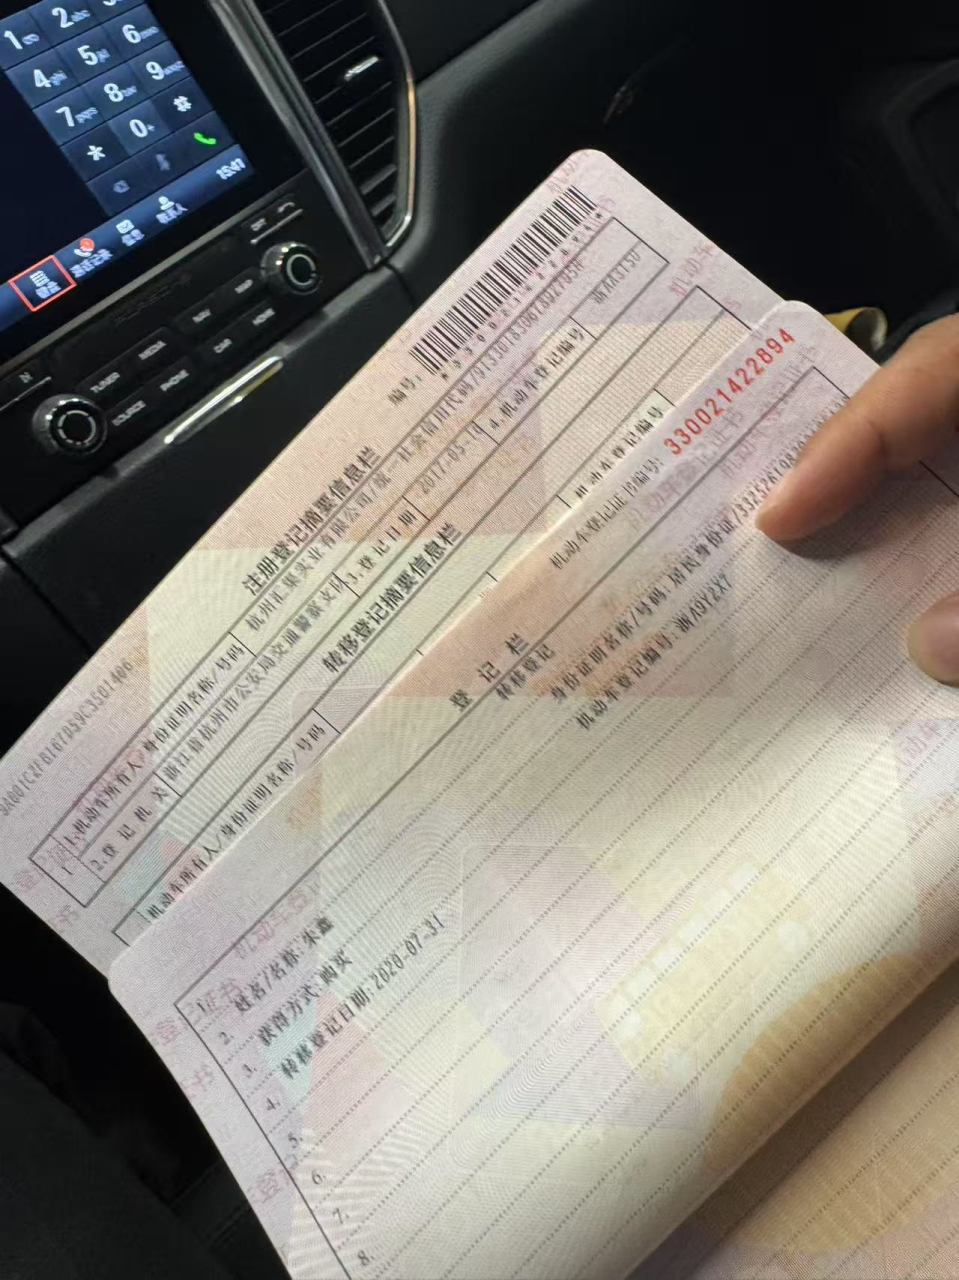 1
2
4
5
6
7
8
9
*
0
#
15:41
TUNER
MEDIA
NAV
MAP
SOURCE
PHONE
CAR
HOME
编号:
注册登记摘要信息栏
1.机动车所有人/身份证明名称/号码
杭州汇果实业有限公司/统一社会信用代码/
2.登记机关
浙江省杭州市公安局交通警察支队
3.登记日期
4.机动车登记编号
转移登记摘要信息栏
机动车所有人/身份证明名称/号码
机动车登记编号
机动车登记证书编号:
330021422894
登记栏
1.
转移登记
2.
姓名/名称:朱鑫
身份证明名称/号码:居民身份证/
3.
获得方式:购买
机动车登记编号:浙A9Y2X7
4.
转移登记日期:2020-07-31
5.
6.
7.
8.